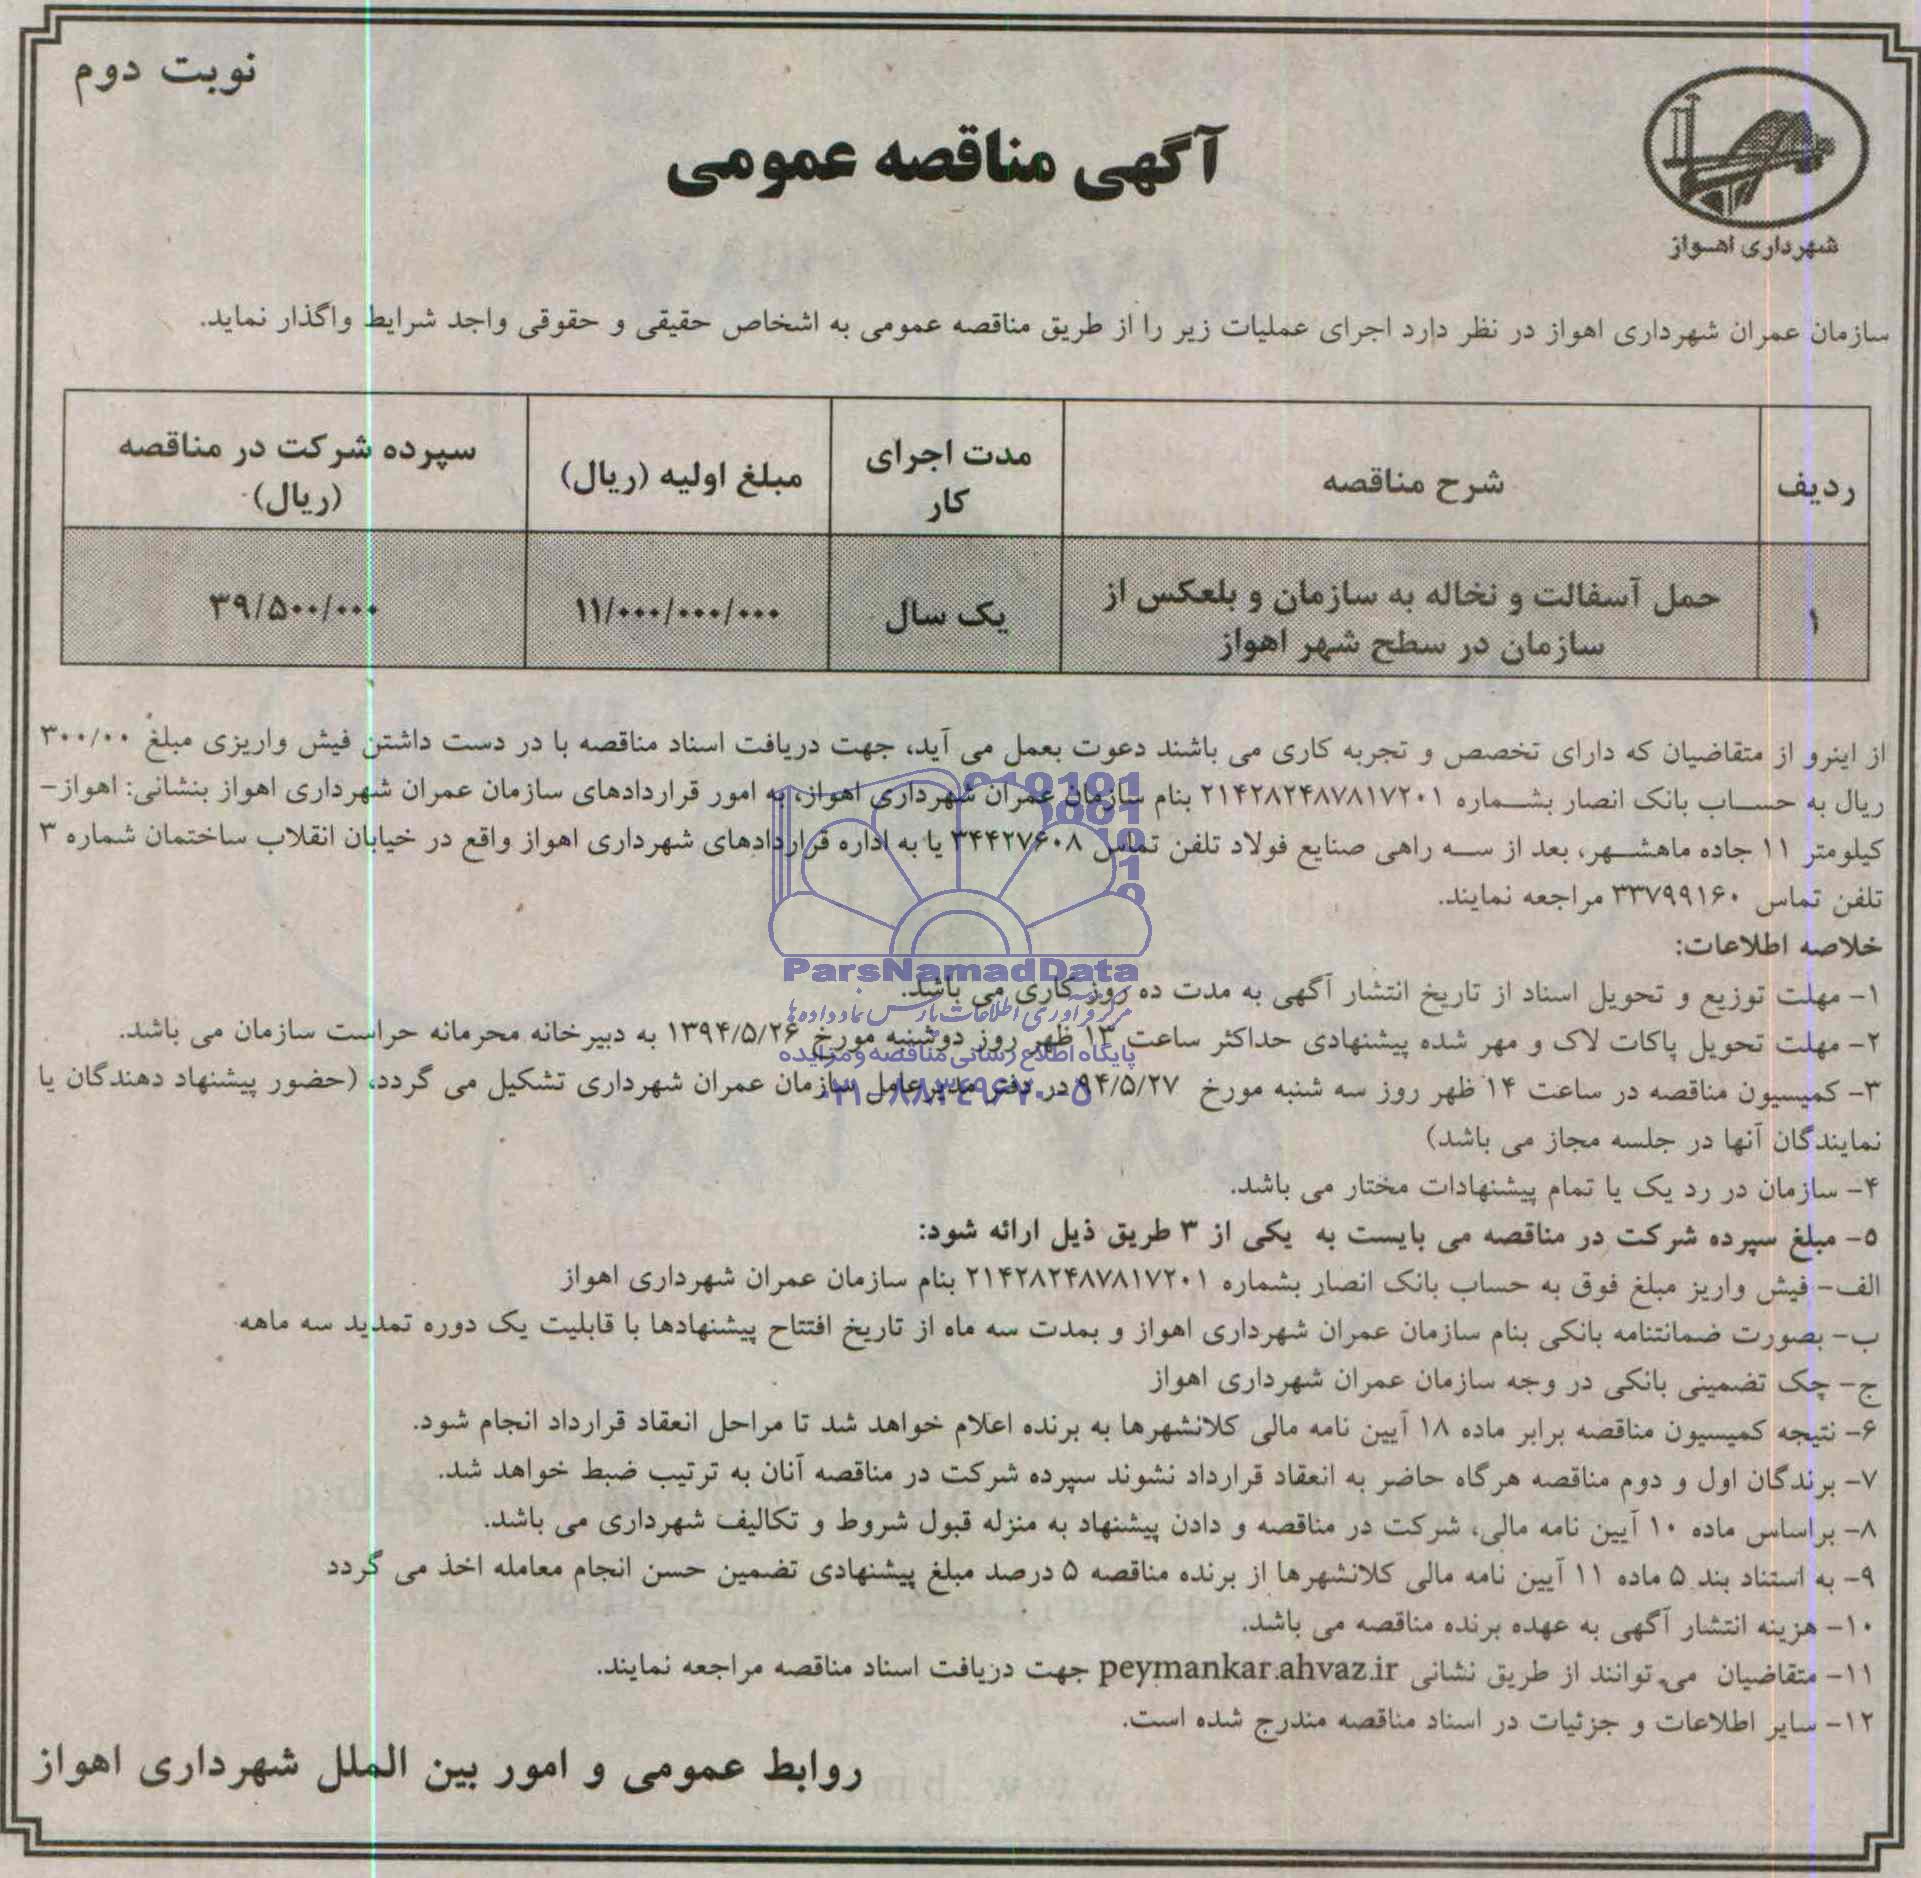 نوبت دوم
شهرداری اهواز
آگهی مناقصه عمومی
سازمان عمران شهرداری اهواز در نظر دارد اجرای عملیات زیر را از طریق مناقصه عمومی به اشخاص حقیقی و حقوقی واجد شرایط واگذار نماید.
ردیف شرح مناقصه مدت اجرای کار مبلغ اولیه (ریال) سپرده شرکت در مناقصه (ریال)
۱ حمل آسفالت و نخاله به سازمان و بلعکس از سازمان در سطح شهر اهواز یک سال ۱۱/۰۰۰/۰۰۰/۰۰۰ ۳۹/۵۰۰/۰۰۰
از اینرو از متقاضیان که دارای تخصص و تجربه کاری می باشند دعوت بعمل می آید، جهت دریافت اسناد مناقصه با در دست داشتن فیش واریزی مبلغ ۳۰۰/۰۰
ریال به حساب بانک انصار بشماره ۲۱۴۲۸۲۴۸۷۸۱۷۲۰۱ بنام سازمان عمران شهرداری اهواز، به امور قراردادهای سازمان عمران شهرداری اهواز بنشانی: اهواز-
کیلومتر ۱۱ جاده ماهشهر، بعد از سه راهی صنایع فولاد تلفن تماس ۳۴۴۲۷۶۰۸ یا به اداره قراردادهای شهرداری اهواز واقع در خیابان انقلاب ساختمان شماره ۳
تلفن تماس ۳۳۷۹۹۱۶۰ مراجعه نمایند.
خلاصه اطلاعات:
۱- مهلت توزیع و تحویل اسناد از تاریخ انتشار آگهی به مدت ده روز کاری می باشد.
۲- مهلت تحویل پاکات لاک و مهر شده پیشنهادی حداکثر ساعت ۱۳ ظهر روز دوشنبه مورخ ۱۳۹۴/۵/۲۶ به دبیرخانه محرمانه حراست سازمان می باشد.
۳- کمیسیون مناقصه در ساعت ۱۴ ظهر روز سه شنبه مورخ ۹۴/۵/۲۷ در دفتر مدیرعامل سازمان عمران شهرداری تشکیل می گردد، (حضور پیشنهاد دهندگان یا
نمایندگان آنها در جلسه مجاز می باشد)
۴- سازمان در رد یک یا تمام پیشنهادات مختار می باشد.
۵- مبلغ سپرده شرکت در مناقصه می بایست به یکی از ۳ طریق ذیل ارائه شود:
الف- فیش واریز مبلغ فوق به حساب بانک انصار بشماره ۲۱۴۲۸۲۴۸۷۸۱۷۲۰۱ بنام سازمان عمران شهرداری اهواز
ب- بصورت ضمانتنامه بانکی بنام سازمان عمران شهرداری اهواز و بمدت سه ماه از تاریخ افتتاح پیشنهادها با قابلیت یک دوره تمدید سه ماهه
ج- چک تضمینی بانکی در وجه سازمان عمران شهرداری اهواز
۶- نتیجه کمیسیون مناقصه برابر ماده ۱۸ آیین نامه مالی کلانشهرها به برنده اعلام خواهد شد تا مراحل انعقاد قرارداد انجام شود.
۷- برندگان اول و دوم مناقصه هرگاه حاضر به انعقاد قرارداد نشوند سپرده شرکت در مناقصه آنان به ترتیب ضبط خواهد شد.
۸- براساس ماده ۱۰ آیین نامه مالی، شرکت در مناقصه و دادن پیشنهاد به منزله قبول شروط و تکالیف شهرداری می باشد.
۹- به استناد بند ۵ ماده ۱۱ آیین نامه مالی کلانشهرها از برنده مناقصه ۵ درصد مبلغ پیشنهادی تضمین حسن انجام معامله اخذ می گردد
۱۰- هزینه انتشار آگهی به عهده برنده مناقصه می باشد.
۱۱- متقاضیان می توانند از طریق نشانی peymankar.ahvaz.ir جهت دریافت اسناد مناقصه مراجعه نمایند.
۱۲- سایر اطلاعات و جزئیات در اسناد مناقصه مندرج شده است.
روابط عمومی و امور بین الملل شهرداری اهواز
ParsNamadData
مرکز فرآوری اطلاعات پارس نماد داده ها
پایگاه اطلاع رسانی مناقصه و مزایده
۰۲۱-۸۸۳۴۹۶۷۰-۵